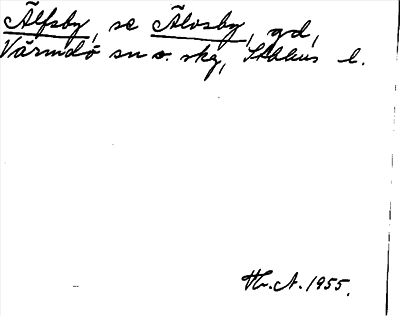 Älfsby, se Älvsby, gd,
Värmdö sn o. skg, Sthlms l.
Hr. N. 1955.